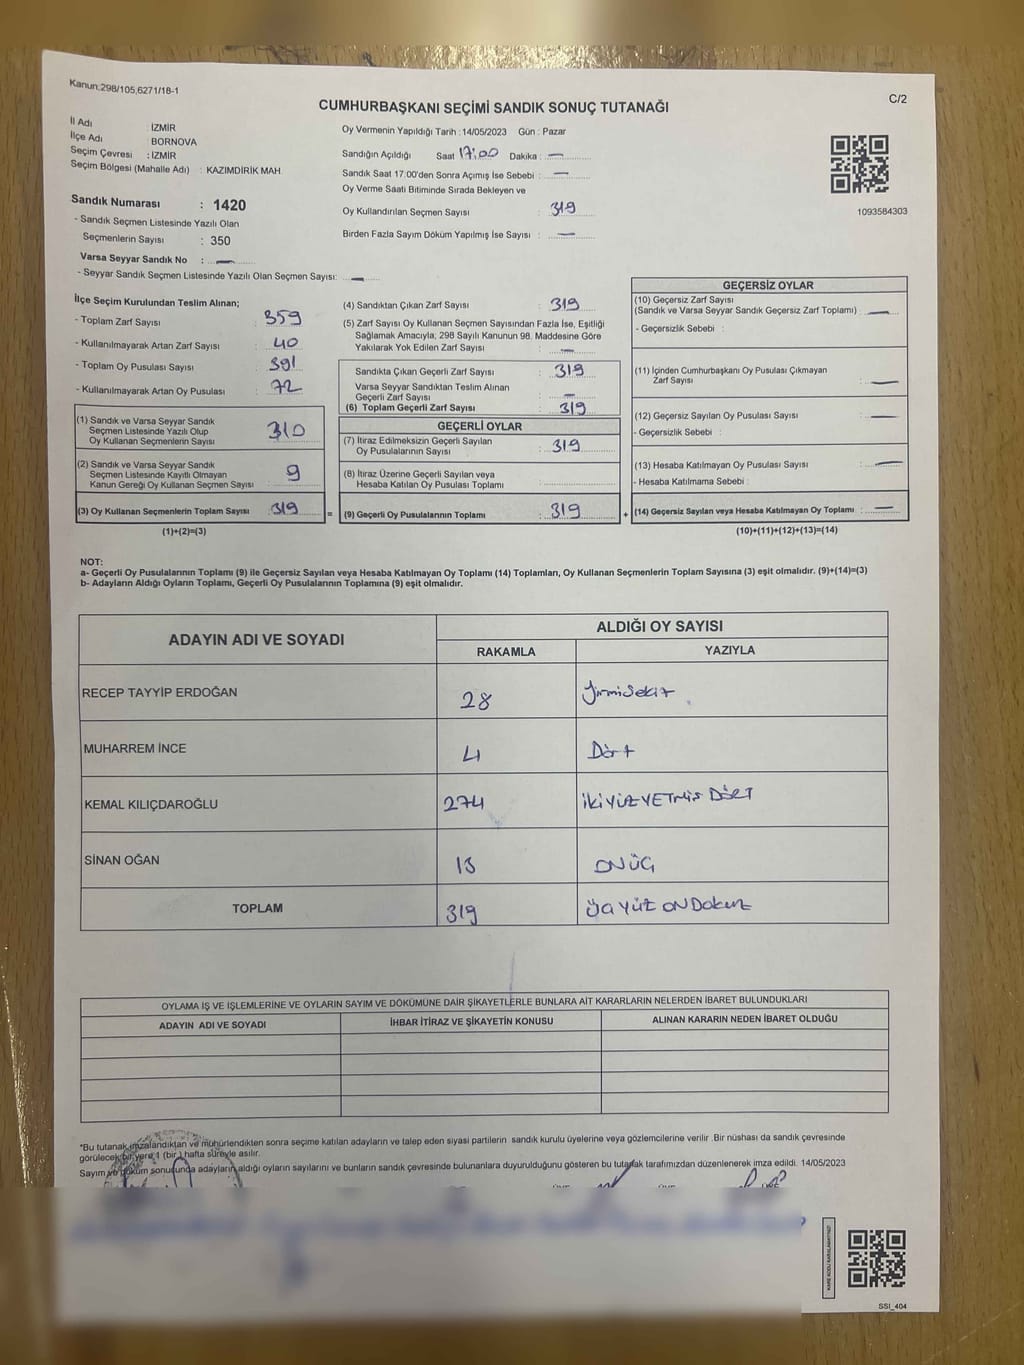 Kanun:298/105,6271/18-1
C/2
CUMHURBAŞKANI SEÇİMİ SANDIK SONUÇ TUTANAĞI
İl Adı : İZMİR
İlçe Adı : BORNOVA
Seçim Çevresi : İZMİR
Seçim Bölgesi (Mahalle Adı) : KAZIMDİRİK MAH.
Sandık Numarası : 1420
- Sandık Seçmen Listesinde Yazılı Olan
Seçmenlerin Sayısı : 350
Varsa Seyyar Sandık No : —
- Seyyar Sandık Seçmen Listesinde Yazılı Olan Seçmen Sayısı: —
Oy Vermenin Yapıldığı Tarih : 14/05/2023 Gün : Pazar
Sandığın Açıldığı Saat 17:00 Dakika : —
Sandık Saat 17:00'den Sonra Açımış İse Sebebi : —
Oy Verme Saati Bitiminde Sırada Bekleyen ve
Oy Kullandırılan Seçmen Sayısı : 319
Birden Fazla Sayım Döküm Yapılmış İse Sayısı : —
1093584303
İlçe Seçim Kurulundan Teslim Alınan;
- Toplam Zarf Sayısı : 359
- Kullanılmayarak Artan Zarf Sayısı : 40
- Toplam Oy Pusulası Sayısı : 391
- Kullanılmayarak Artan Oy Pusulası : 72
(1) Sandık ve Varsa Seyyar Sandık
Seçmen Listesinde Yazılı Olup
Oy Kullanan Seçmenlerin Sayısı : 310
(2) Sandık ve Varsa Seyyar Sandık
Seçmen Listesinde Kayıtlı Olmayan
Kanun Gereği Oy Kullanan Seçmen Sayısı : 9
(3) Oy Kullanan Seçmenlerin Toplam Sayısı : 319
(1)+(2)=(3)
=
(4) Sandıktan Çıkan Zarf Sayısı : 319
(5) Zarf Sayısı Oy Kullanan Seçmen Sayısından Fazla İse, Eşitliği
Sağlamak Amacıyla, 298 Sayılı Kanunun 98. Maddesine Göre
Yakılarak Yok Edilen Zarf Sayısı : —
Sandıkta Çıkan Geçerli Zarf Sayısı : 319
Varsa Seyyar Sandıktan Teslim Alınan
Geçerli Zarf Sayısı : —
(6) Toplam Geçerli Zarf Sayısı : 319
GEÇERLİ OYLAR
(7) İtiraz Edilmeksizin Geçerli Sayılan
Oy Pusulalarının Sayısı : 319
(8) İtiraz Üzerine Geçerli Sayılan veya
Hesaba Katılan Oy Pusulası Toplamı :
(9) Geçerli Oy Pusulalarının Toplamı : 319
+
GEÇERSİZ OYLAR
(10) Geçersiz Zarf Sayısı
(Sandık ve Varsa Seyyar Sandık Geçersiz Zarf Toplamı) : —
- Geçersizlik Sebebi :
(11) İçinden Cumhurbaşkanı Oy Pusulası Çıkmayan
Zarf Sayısı : —
(12) Geçersiz Sayılan Oy Pusulası Sayısı : —
- Geçersizlik Sebebi :
(13) Hesaba Katılmayan Oy Pusulası Sayısı : —
- Hesaba Katılmama Sebebi :
(14) Geçersiz Sayılan veya Hesaba Katılmayan Oy Toplamı : —
(10)+(11)+(12)+(13)=(14)
NOT:
a- Geçerli Oy Pusulalarının Toplamı (9) ile Geçersiz Sayılan veya Hesaba Katılmayan Oy Toplamı (14) Toplamları, Oy Kullanan Seçmenlerin Toplam Sayısına (3) eşit olmalıdır. (9)+(14)=(3)
b- Adayların Aldığı Oyların Toplamı, Geçerli Oy Pusulalarının Toplamına (9) eşit olmalıdır.
ADAYIN ADI VE SOYADI
ALDIĞI OY SAYISI
RAKAMLA YAZIYLA
RECEP TAYYİP ERDOĞAN 28 Yirmisekiz
MUHARREM İNCE 4 Dört
KEMAL KILIÇDAROĞLU 274 İKİYÜZYETMİŞ DÖRT
SİNAN OĞAN 13 ONÜÇ
TOPLAM 319 ÜÇ YÜZ ONDokuz
OYLAMA İŞ VE İŞLEMLERİNE VE OYLARIN SAYIM VE DÖKÜMÜNE DAİR ŞİKAYETLERLE BUNLARA AİT KARARLARIN NELERDEN İBARET BULUNDUKLARI
ADAYIN ADI VE SOYADI İHBAR İTİRAZ VE ŞİKAYETİN KONUSU ALINAN KARARIN NEDEN İBARET OLDUĞU
*Bu tutanak imzalandıktan ve mühürlendikten sonra seçime katılan adayların ve talep eden siyasi partilerin sandık kurulu üyelerine veya gözlemcilerine verilir .Bir nüshası da sandık çevresinde
görülecek bir yere 1 (bir) hafta süreyle asılır.
Sayım ve döküm sonusunda adayların aldığı oyların sayılarını ve bunların sandık çevresinde bulunanlara duyurulduğunu gösteren bu tutanak tarafımızdan düzenlenerek imza edildi. 14/05/2023
SSI_404